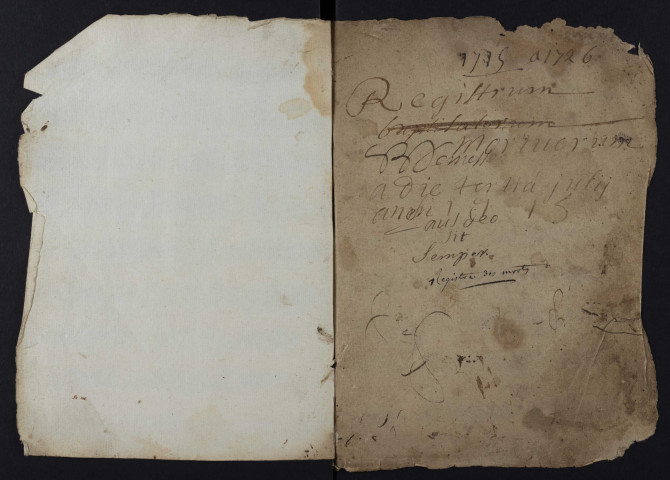 1715 a 1726
Registrum
baptisatorum
Mortuorum
a die tertia julij
anni 1715
laus deo
sit
Semper.
Registre des morts